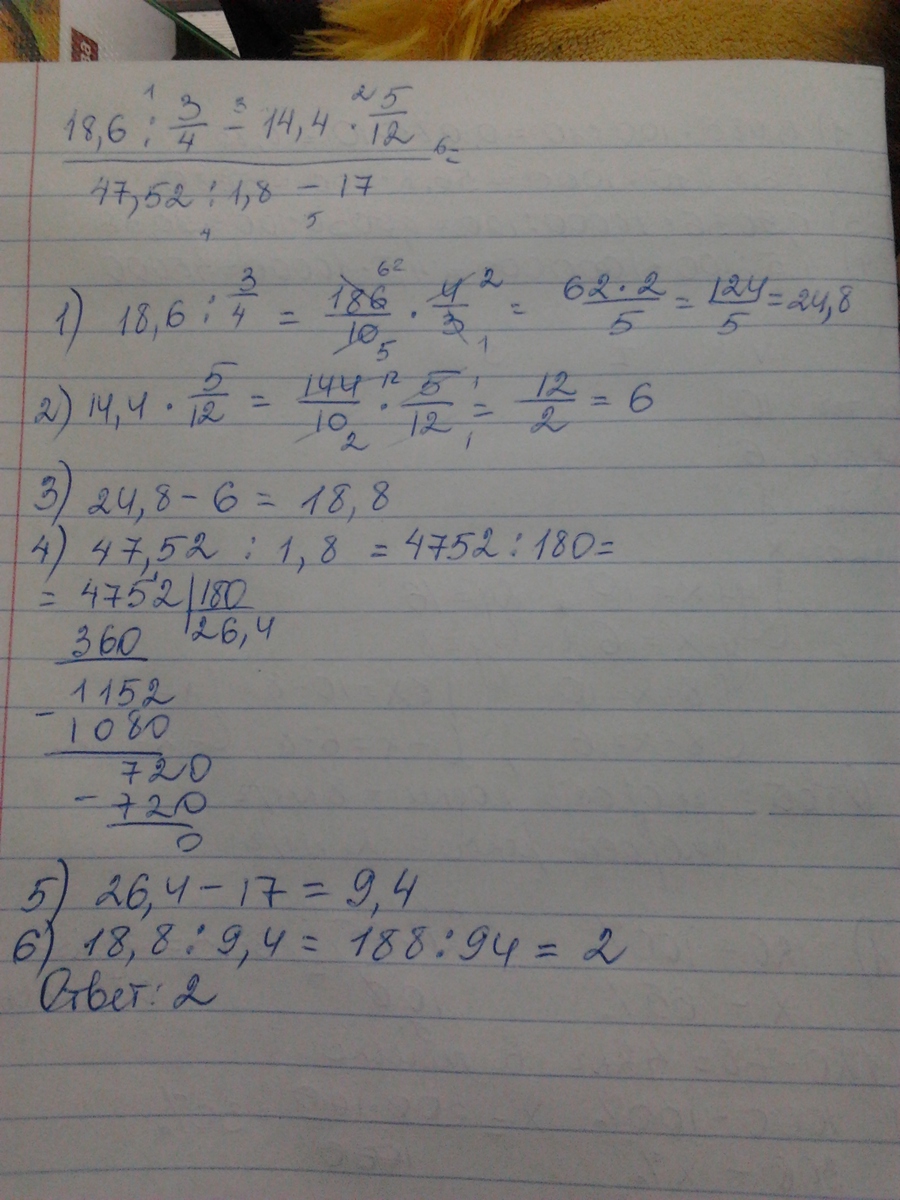 1 3 3 2 5
18,6 : 3/4 − 14,4 · 5/12
47,52 : 1,8 − 17 6=
4 5
1) 18,6 : 3/4 = 186/10 · 4/3 = 62·2/5 = 124/5 = 24,8
62 5 2 1
2) 14,4 · 5/12 = 144/10 · 5/12 = 12/2 = 6
12 2 1 1
3) 24,8 − 6 = 18,8
4) 47,52 : 1,8 = 4752 : 180 =
= 4752 | 180
360 26,4
1152
− 1080
720
− 720
0
5) 26,4 − 17 = 9,4
6) 18,8 : 9,4 = 188 : 94 = 2
Ответ: 2